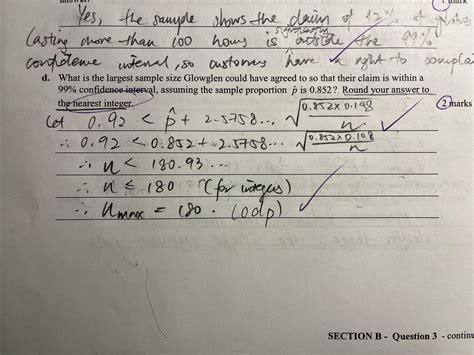 1 mark
Yes, the sample shows the claim of 92% of globes
lasting more than 100 hours is significantly outside the 99%
confidence interval, so customers have a right to complain
d. What is the largest sample size Glowglen could have agreed to so that their claim is within a
99% confidence interval, assuming the sample proportion p̂ is 0.852? Round your answer to
the nearest integer.
2 marks
Let 0.92 < p̂ + 2.5758... √(0.852×0.148/n)
∴ 0.92 < 0.852 + 2.5758... √(0.852×0.148/n)
∴ n < 180.93...
∴ n ≤ 180 (for integers)
∴ nmax = 180. (0dp)
SECTION B - Question 3 - continu